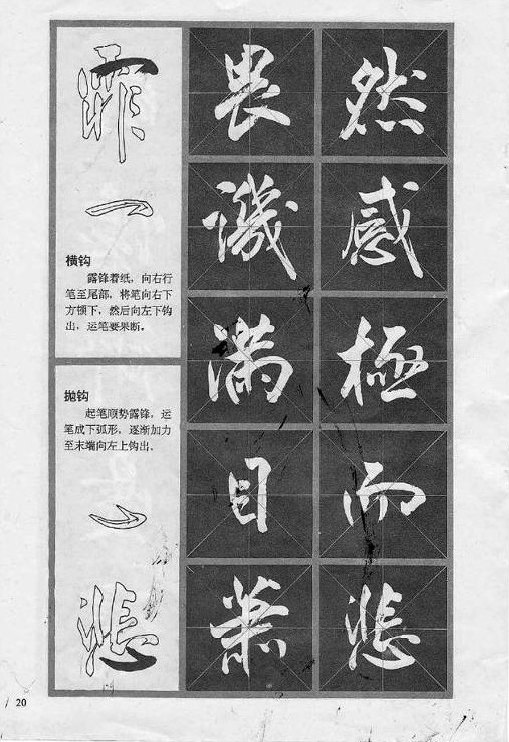 霏
横钩
露锋着纸，向右行
笔至尾部，将笔向右下
方顿下，然后向左下钩
出，运笔要果断。
抛钩
起笔顺势露锋，运
笔成下弧形，逐渐加力
至末端向左上钩出。
悲
畏
譏
滿
目
蕭
然
感
極
而
悲
20